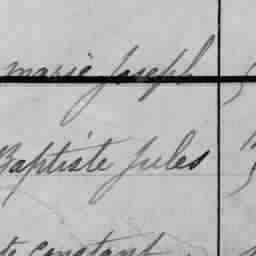 marie Joseph
Baptiste Jules
constant